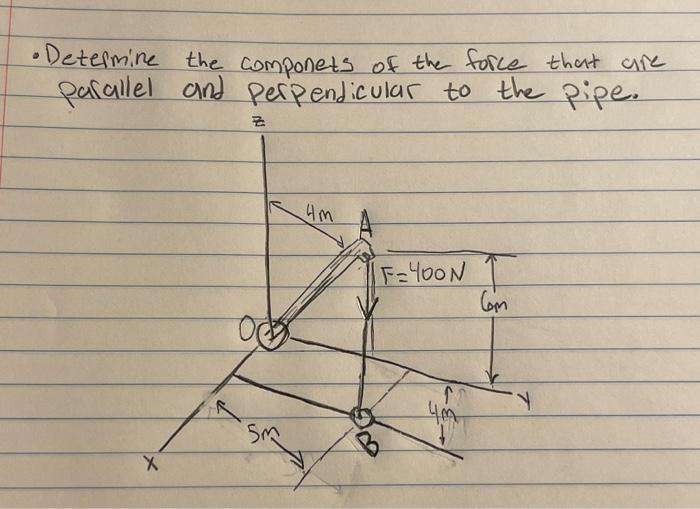 • Determine the componets of the force that are
parallel and perpendicular to the pipe.
z
4m
A
F=400N
6m
O
y
4m
5m
B
x